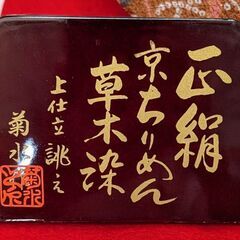 正絹
京ちりめん
草木染
上仕立誂え
菊水